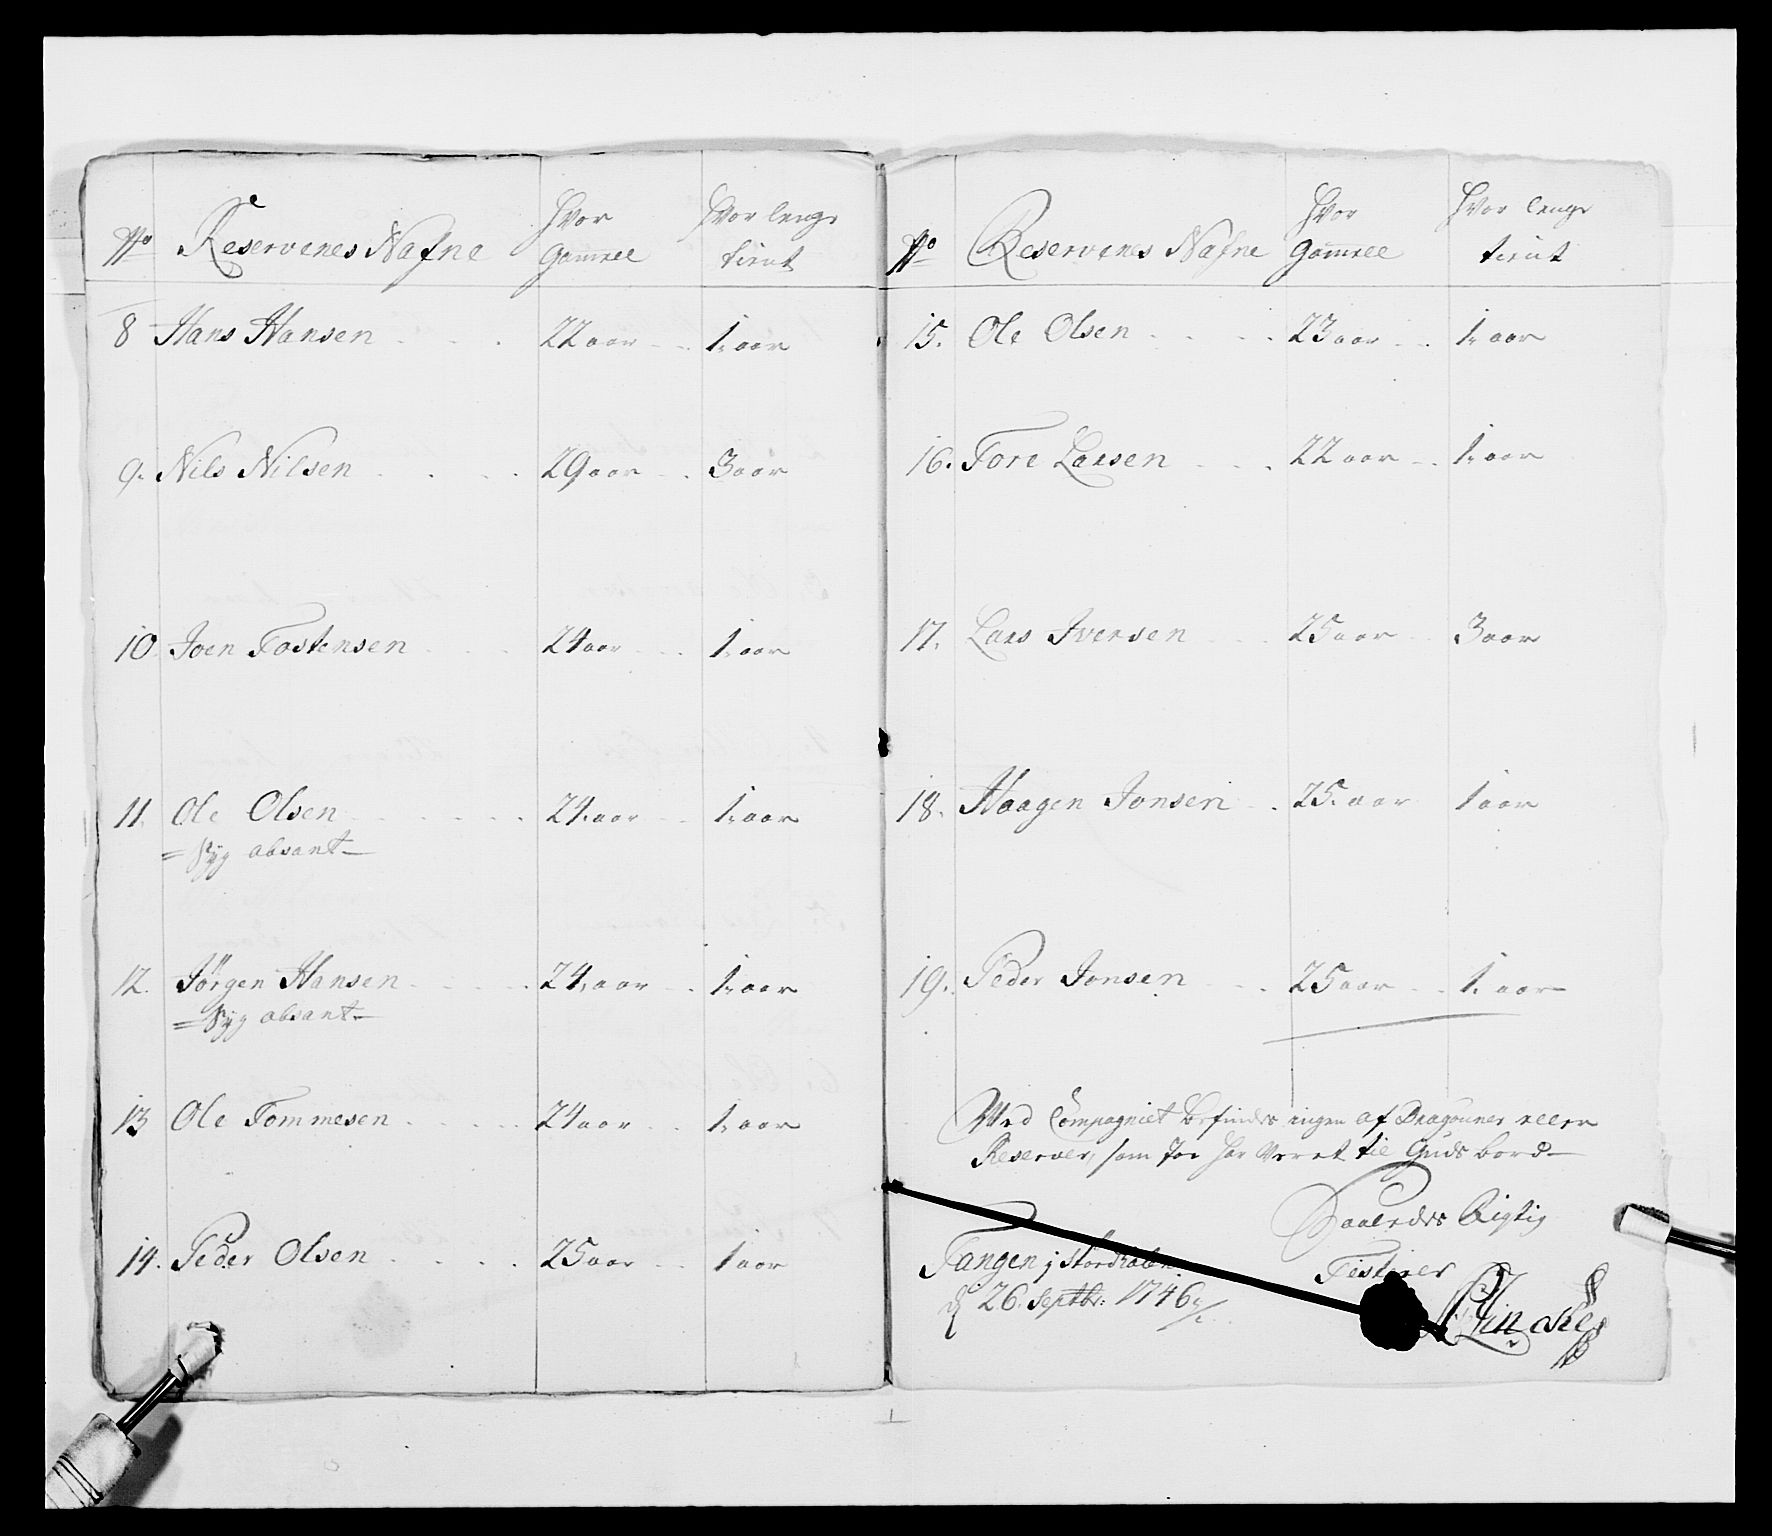 No Reservenes Nafne Hvor Gammel Hvor lenge tient
8 Hans Hansen 22 aar 1. aar
9. Nils Nilsen 29 aar 3 aar
10 Joen Tostensen 24 aar 1. aar
11. Ole Olsen 24. aar 1. aar
= Syg absant
12. Jörgen Hansen 24. aar 1. aar
= Syg absant
13 Ole Tommesen 24 aar 1. aar
14. Peder Olsen 25 aar 1 aar
No Reservenes Nafne Hvor Gammel Hvor lenge tient
15. Ole Olsen 23 aar 1. aar
16. Tore Larsen 22 aar 1. aar
17. Lars Iversen 25 aar 3 aar
18. Haagen Jonsen 25. aar 1 aar
19. Peder Jonsen 25 aar 1. aar
Ved Compagniet befindes ingen af Dragouner eller
Reserver, som joe har veret til Guds bord
Saaledes Rigtig
Tangen j
Testerer
d 26. Septbr: 1746